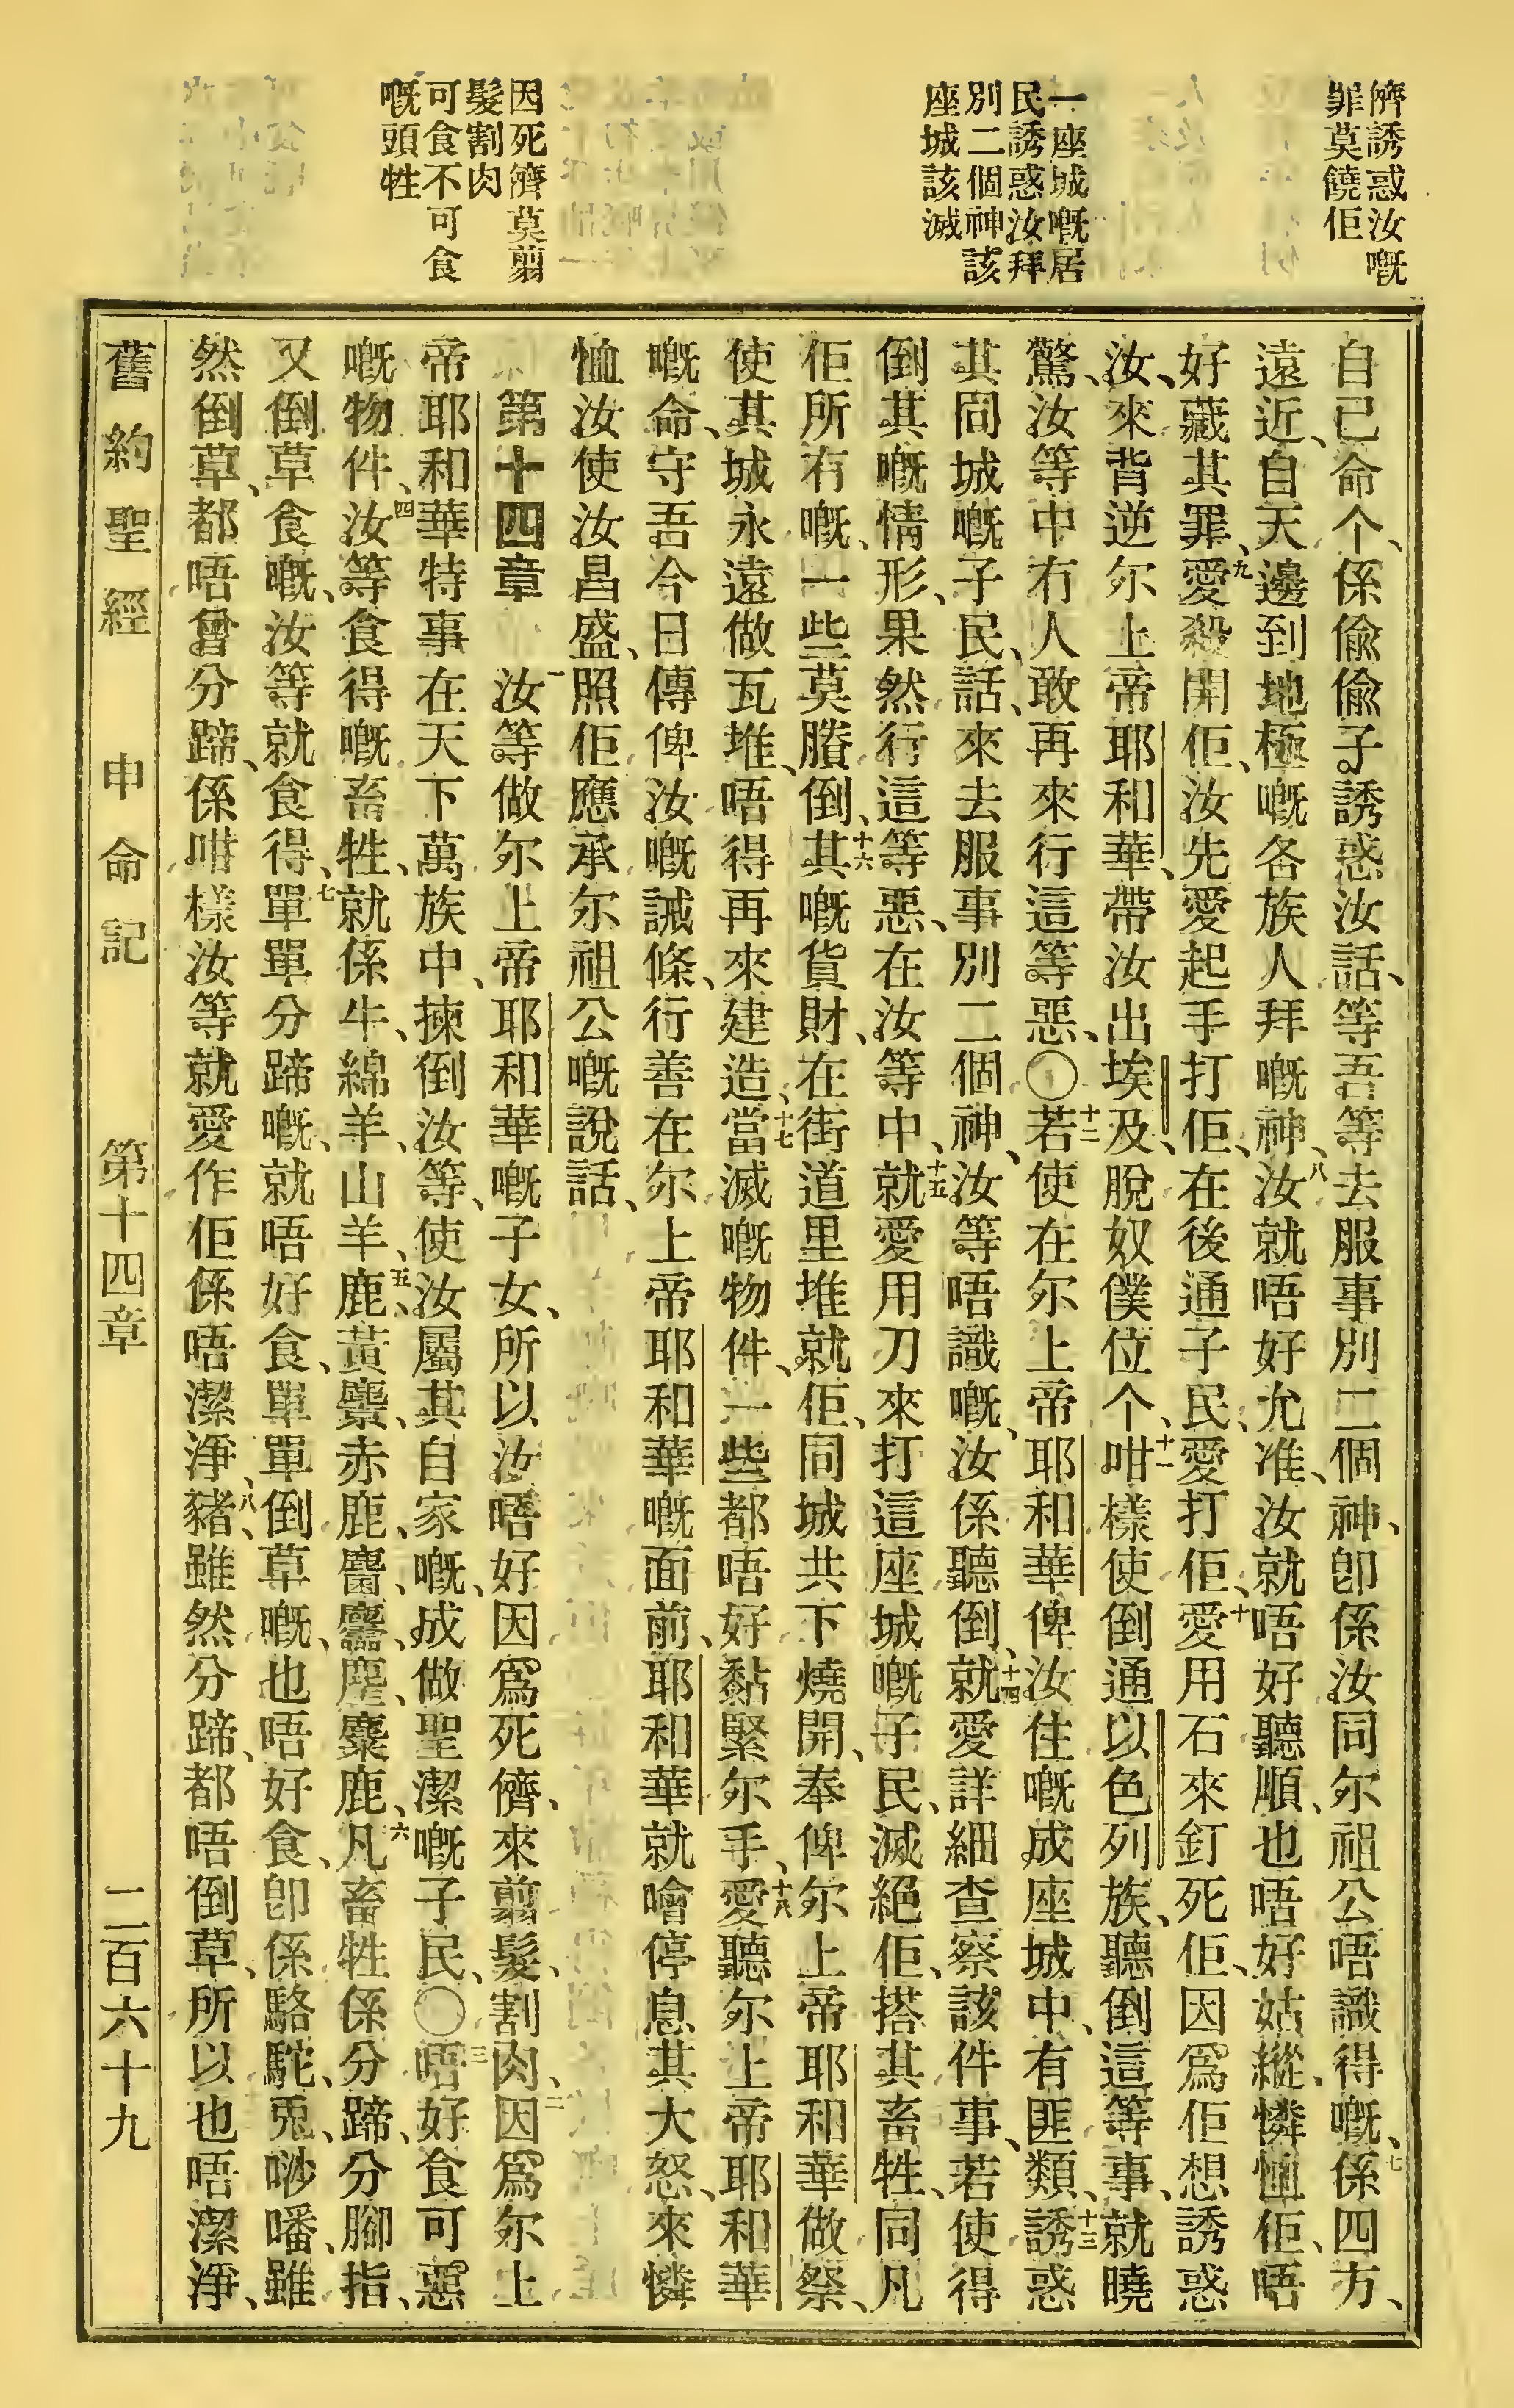 儕誘惑汝嘅
罪莫饒佢
一座城嘅居
民誘惑汝拜
別二個神該
座城該滅
因死儕莫剪
髮割肉
可食不可食
嘅頭牲
自己命个、係偸偸子誘惑汝話、等吾等去服事別二個神、卽係汝同尔祖公唔識得嘅、七係四方、
遠近、自天邊到地極嘅各族人拜嘅神、八汝就唔好允准、汝就唔好聽順、也唔好姑縱憐恤佢、唔
好藏其罪、九愛殺開佢、汝先愛起手打佢、在後通子民、愛打佢、十愛用石來釘死佢、因爲佢想誘惑
汝、來背逆尔上帝耶和華、帶汝出埃及、脫奴僕位个、十一咁樣使倒通以色列族、聽倒這等事、就曉
驚、汝等中冇人敢再來行這等惡、〇十二若使在尔上帝耶和華俾汝住嘅成座城中、有匪類、十三誘惑
其同城嘅子民、話、來去服事別二個神、汝等唔識嘅、汝係聽倒、十四就愛詳細查察該件事、若使得
倒其嘅情形、果然行這等惡、在汝等中、十五就愛用刀來打這座城嘅子民、滅絕佢、搭其畜牲、同凡
佢所有嘅、一些莫賸倒、十六其嘅貨財、在街道里堆就佢、同城共下燒開、奉俾尔上帝耶和華做祭、
使其城永遠做瓦堆、唔得再來建造、十七當滅嘅物件、一些都唔好黏緊尔手、十八愛聽尔上帝耶和華
嘅命、守吾今日傳俾汝嘅誡條、行善在尔上帝耶和華嘅面前、耶和華就噲停息其大怒、來憐
恤汝使汝昌盛、照佢應承尔祖公嘅說話、
第十四章 一汝等做尔上帝耶和華嘅子女、所以汝唔好因爲死儕、來剪髮、割肉、二因爲尔上
帝耶和華特事在天下萬族中、揀倒汝等、使汝屬其自家嘅、成做聖潔嘅子民、〇三唔好食可惡
嘅物件、四汝等食得嘅畜牲、就係牛、綿羊、山羊、五鹿、黃麞、赤鹿、麕、麢、麈、麋鹿、六凡畜牲係分蹄、分腳指、
又倒草食嘅、汝等就食得、七單單分蹄嘅、就唔好食、單單倒草嘅、也唔好食、卽係駱駝、兎、唦噃、雖
然倒草、都唔曾分蹄、係咁樣汝等就愛作佢係唔潔淨、八豬、雖然分蹄、都唔倒草、所以也唔潔淨、
舊約聖經 申命記 第十四章 二百六十九